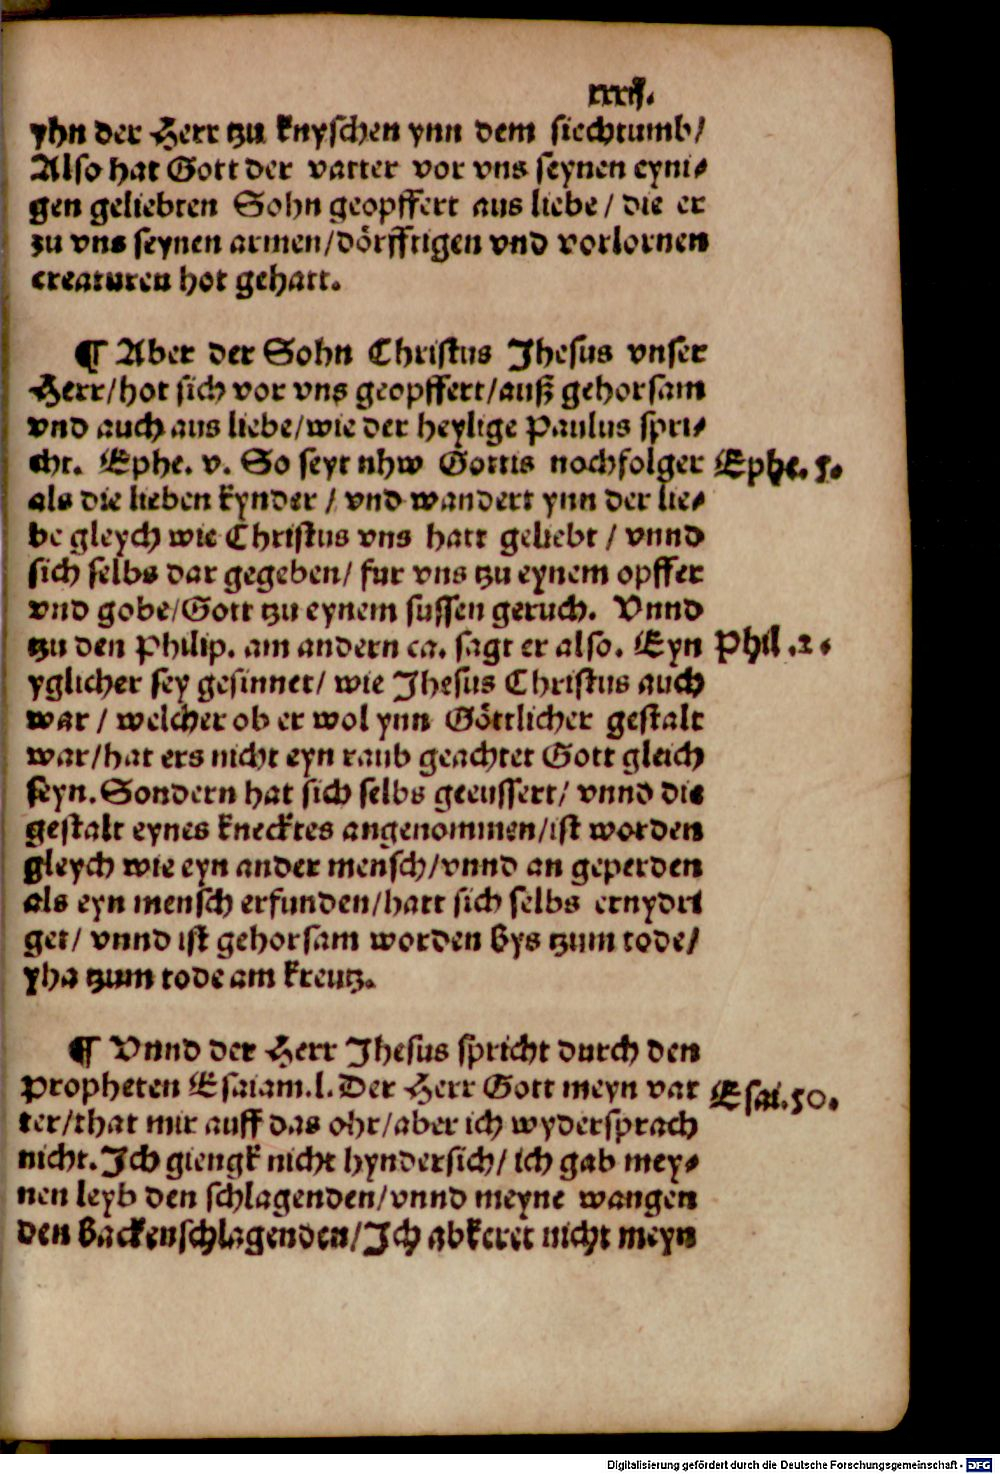 xxxij.
yhn der Herr tzu knyschen ynn dem siechtumb/
Also hat Gott der vatter vor vns seynen eyni⸗
gen geliebten Sohn geopffert aus liebe / die er
zu vns seynen armen/dörfftigen vnd vorlornen
creaturen hot gehatt.
¶ Aber der Sohn Christus Jhesus vnser
Herr/hot sich vor vns geopffert/auß gehorsam
vnd auch aus liebe/wie der heylige Paulus spri⸗
cht. Ephe. v. So seyt nhw Gottis nochfolger
Ephe. 5.
als die lieben kynder / vnd wandert ynn der lie⸗
be gleych wie Christus vns hatt geliebt / vnnd
sich selbs dar gegeben/ fur vns tzu eynem opffer
vnd gobe/Gott tzu eynem sussen geruch. Vnnd
tzu den Philip. am andern ca. sagt er also. Eyn
Phil .2.
yglicher sey gesinnet/ wie Jhesus Christus auch
war / welcher ob er wol ynn Göttlicher gestalt
war/hat ers nicht eyn raub geachtet Gott gleich
seyn. Sondern hat sich selbs geeussert/ vnnd die
gestalt eynes knecktes angenommen/ist worden
gleych wie eyn ander mensch/vnnd an geperden
als eyn mensch erfunden/hatt sich selbs ernydri
get/ vnnd ist gehorsam worden bys tzum tode/
yha tzum tode am kreutz.
¶ Vnnd der Herr Jhesus spricht durch den
Propheten Esaiam.l. Der Herr Gott meyn vat
Esai.50.
ter/that mir auff das ohr/aber ich wydersprach
nicht. Jch giengk nicht hyndersich/ ich gab mey⸗
nen leyb den schlagenden/vnnd meyne wangen
den backenschlagenden/Jch abkeret nicht meyn
Digitalisierung gefördert durch die Deutsche Forschungsgemeinschaft - DFG